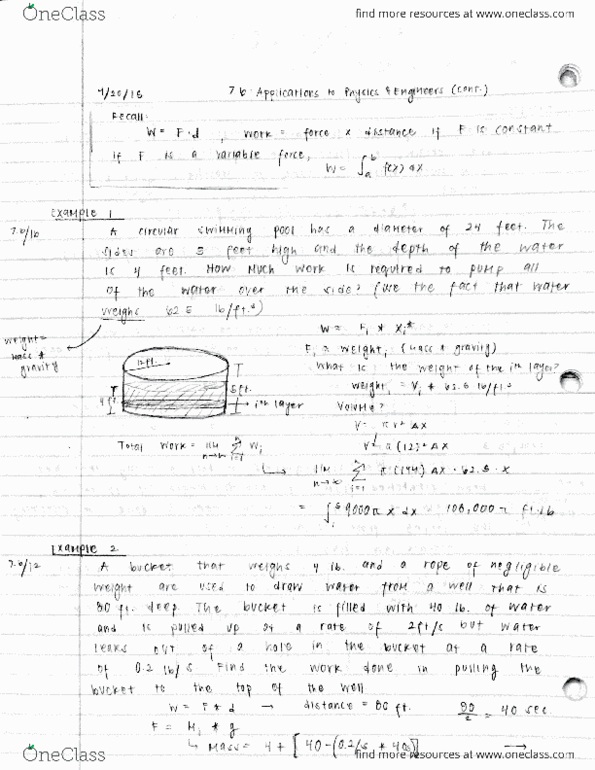 OneClass
find more resources at www.oneclass.com
7.6 Applications to Physics & Engineers (cont.)
Recall:
W = F·d , work = force × distance if F is constant
if F is a variable force,
W = ∫ₐᵇ f(x) dx
EXAMPLE 1
7.6/16
A circular swimming pool has a diameter of 24 feet. The
sides are 5 feet high and the depth of the water
is 4 feet. How much work is required to pump all
of the water over the side? (Use the fact that water
weighs 62.5 lb/ft.³)
weight =
mass *
gravity
W = Fᵢ * xᵢ*
Fᵢ = weightᵢ (mass * gravity)
What is the weight of the iᵗʰ layer?
weightᵢ = Vᵢ * 62.5 lb/ft³
Volume?
V = π r² Δx
V = π (12)² Δx
12 ft.
5 ft.
4 ft
iᵗʰ layer
Total Work = lim n→∞ Σ i=1 n Wᵢ
lim n→∞ Σ i=1 n π (144) Δx · 62.5 · x
= ∫₁⁵ 9000π x dx = 108,000 π ft·lb
EXAMPLE 2
7.6/12
A bucket that weighs 4 lb. and a rope of negligible
weight are used to draw water from a well that is
80 ft. deep. The bucket is filled with 40 lb. of water
and is pulled up at a rate of 2ft/s but water
leaks out of a hole in the bucket at a rate
of 0.2 lb/s. Find the work done in pulling the
bucket to the top of the well
W = F * d → distance = 80 ft. 80/2 = 40 sec.
F = Mᵢ * g
↳ Mass = 4 + [40 - (0.2/s * 40s)] →
OneClass
find more resources at www.oneclass.com